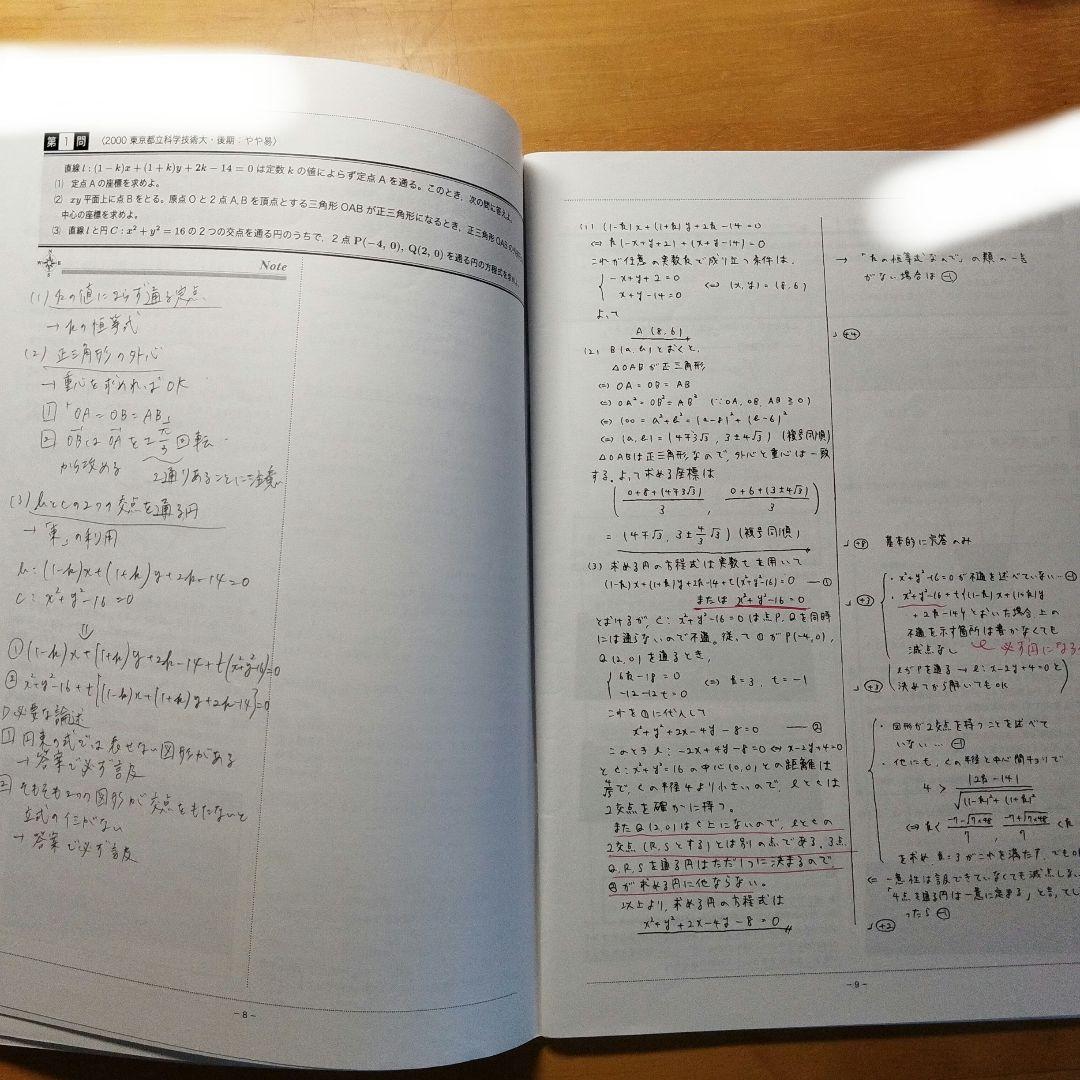 第1問 〈2000 東京都立科学技術大・後期：やや易〉
直線 l : (1−k)x+(1+k)y+2k−14=0 は定数 k の値によらず定点 A を通る。このとき，次の問に答えよ。
(1) 定点 A の座標を求めよ。
(2) xy 平面上に点 B をとる。原点 O と 2 点 A, B を頂点とする三角形 OAB が正三角形になるとき，正三角形 OAB の
中心の座標を求めよ。
(3) 直線 l と円 C : x²+y²=16 の 2 つの交点を通る円のうちで，2 点 P(−4, 0), Q(2, 0) を通る円の方程式を求めよ。
Note
(1) kの値によらず通る定点
→ kの恒等式
(2) 正三角形の外心
→ 重心を求めればOK
① 「OA=OB=AB」
② OBはOAを±π/3回転
から攻める
2通りあることに注意
(3) lとCの2つの交点を通る円
→ 「束」の利用
l : (1-k)x+(1+k)y+2k-14=0
C : x²+y²-16=0
⇓
① (1-k)x+(1+k)y+2k-14+t(x²+y²-16)=0
② x²+y²-16+t{(1-k)x+(1+k)y+2k-14}=0
必要な論述
1 円束の式では表せない図形がある
→ 答案で必ず言及
2 そもそも2つの図形が交点をもたないと
立式の仕がない
→ 答案で必ず言及
-8-
(1) (1-k)x+(1+k)y+2k-14=0
⇔ k(-x+y+2)+(x+y-14)=0
これが任意の実数kで成り立つ条件は、
{-x+y+2=0
x+y-14=0 ⇔ (x,y)=(8,6)
よって
A(8,6)
(2) B(a,b)とおくと、
△OABが正三角形
⇔ OA=OB=AB
⇔ OA²=OB²=AB² (∵OA,OB,AB≧0)
⇔ 100=a²+b²=(a-8)²+(b-6)²
⇔ (a,b)=(4∓3√3, 3±4√3) (複号同順)
△OABは正三角形なので、外心と重心は一致
する。よって求める座標は
(0+8+(4∓3√3)/3, 0+6+(3±4√3)/3)
=(4∓√3, 3±4/3√3) (複号同順)
(3) 求める円の方程式は実数tを用いて
(1-k)x+(1+k)y+2k-14+t(x²+y²-16)=0 — ①
または x²+y²-16=0
とおけるが、C: x²+y²-16=0は点P,Qを同時
には通らないので不適。従って①がP(-4,0),
Q(2,0)を通るとき、
{6k-18=0
-12-12t=0 ⇔ k=3, t=-1
これを①に代入して
x²+y²+2x-4y-8=0 — ②
このとき l: -2x+4y-8=0⇔x-2y+4=0
とC: x²+y²=16の中心(0,0)との距離は
4/√5で、Cの半径4より小さいので、lとCは
2交点を確かに持つ。
またQ(2,0)はC上にないので、lとCの
2交点(R,Sとする)とは別の点である。3点
Q,R,Sを通る円はただ1つに決まるので
②が求める円に他ならない。
以上より、求める円の方程式は
x²+y²+2x-4y-8=0
→ 「kの恒等式なので」の類の一言
がない場合は -1
+4
+8 基本的に完答のみ
+3
・x²+y²-16=0が不適を述べていない…-1
・x²+y²-16+t{(1-k)x+(1+k)y
+2k-14}とおいた場合、上の
不適を示す箇所は書かなくても
減点なし ← 必ず円になる
+3
lがPを通る→l: x-2y+4=0と
決めてから解いてもOK
・図形が2交点を持つことを述べて
いない… -1
・他にも、Cの半径と中心間キョリで
4 > |2k-14|/√((1-k)²+(1+k)²)
を求めk=3がこれを満たす、でもOK
⇐ 一意性は言及できていなくても減点しない
「4点を通る円は一意に定まる」と言ってし
ったら -1
+2
-9-